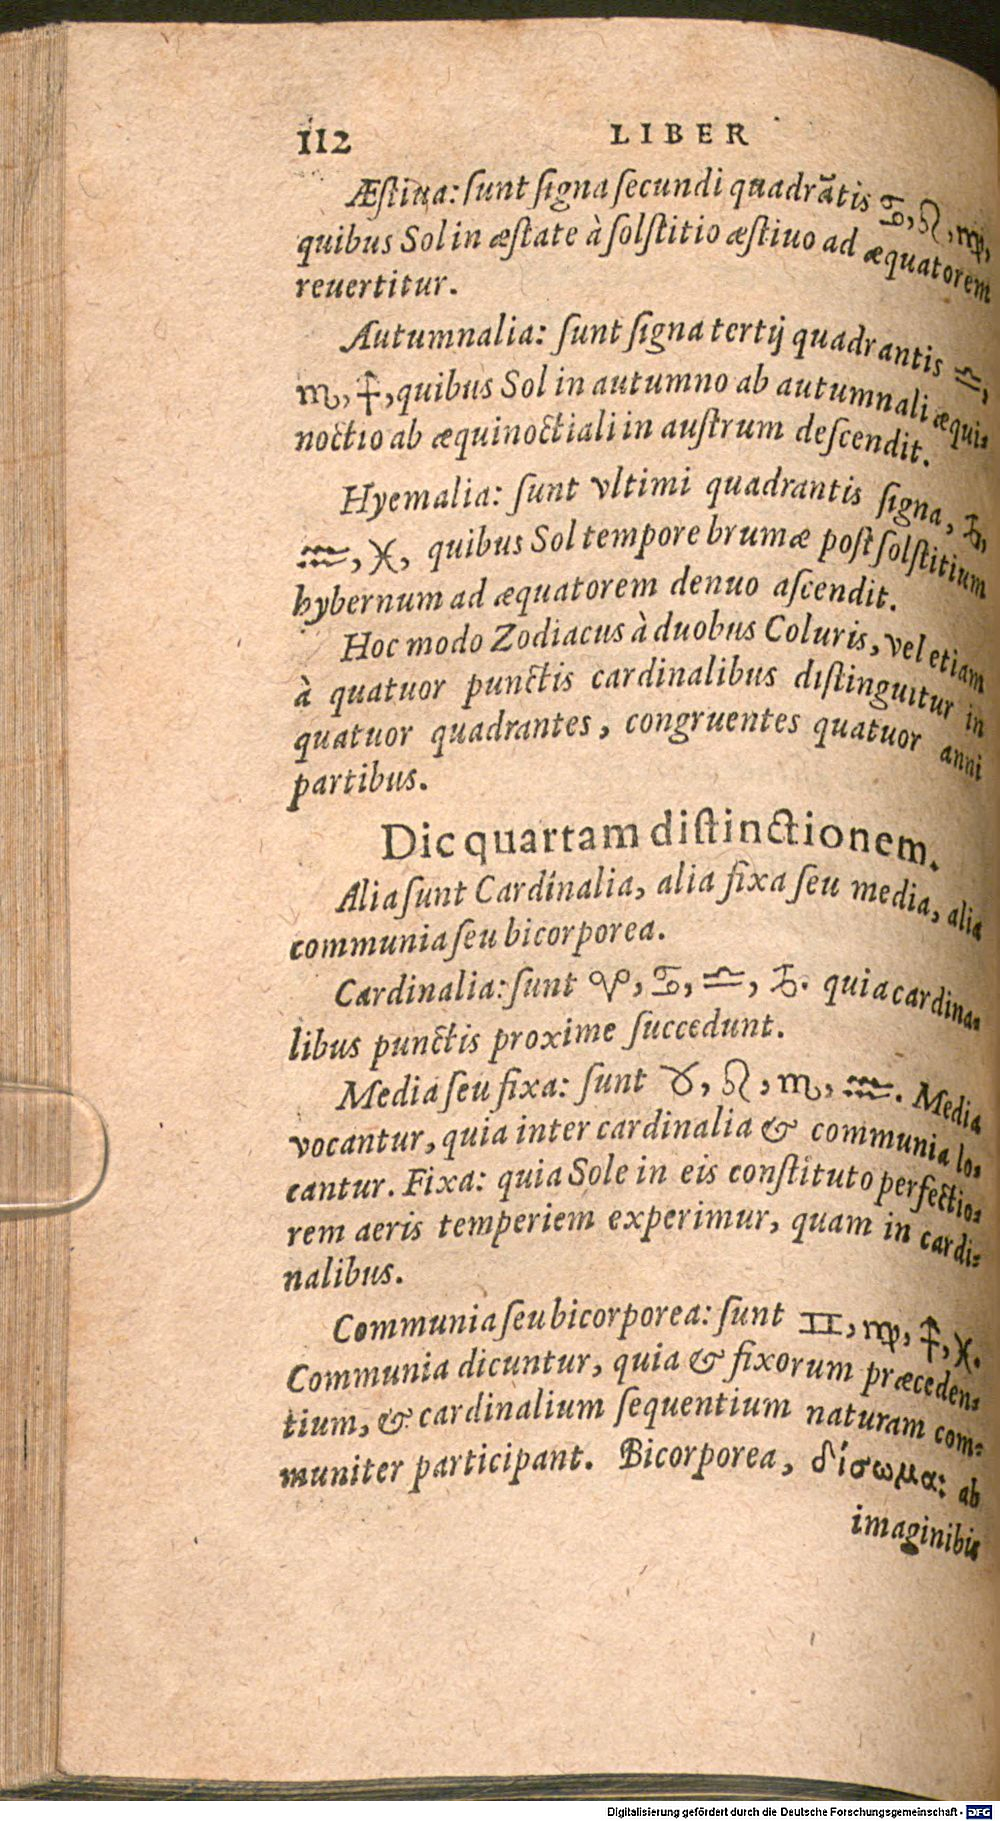 112 LIBER
Æſtiua: ſunt ſigna ſecundi quadrãtis ♋, ♌, ♍,
quibus Sol in æſtate à ſolſtitio æſtiuo ad æquatorem
reuertitur.
Autumnalia: ſunt ſigna tertij quadrantis ♎,
♏, ♐, quibus Sol in autumno ab autumnali æqui-
noctio ab æquinoctiali in auſtrum deſcendit.
Hyemalia: ſunt vltimi quadrantis ſigna, ♑,
♒, ♓, quibus Sol tempore brumæ poſt ſolſtitium
hybernum ad æquatorem denuo aſcendit.
Hoc modo Zodiacus à duobus Coluris, vel etiam
à quatuor punctis cardinalibus diſtinguitur in
quatuor quadrantes, congruentes quatuor anni
partibus.
Dic quartam diſtinctionem.
Alia ſunt Cardinalia, alia fixa ſeu media, alia
communia ſeu bicorporea.
Cardinalia: ſunt ♈, ♋, ♎, ♑. quia cardina-
libus punctis proxime ſuccedunt.
Media ſeu fixa: ſunt ♉, ♌, ♏, ♒. Media
vocantur, quia inter cardinalia & communia lo-
cantur. Fixa: quia Sole in eis conſtituto perfectio-
rem aeris temperiem experimur, quam in cardi-
nalibus.
Communia ſeu bicorporea: ſunt ♊, ♍, ♐, ♓.
Communia dicuntur, quia & fixorum præceden-
tium, & cardinalium ſequentium naturam com-
muniter participant. Bicorporea, δίσωμα: ab
imaginibus
Digitalisierung gefördert durch die Deutsche Forschungsgemeinschaft - DFG